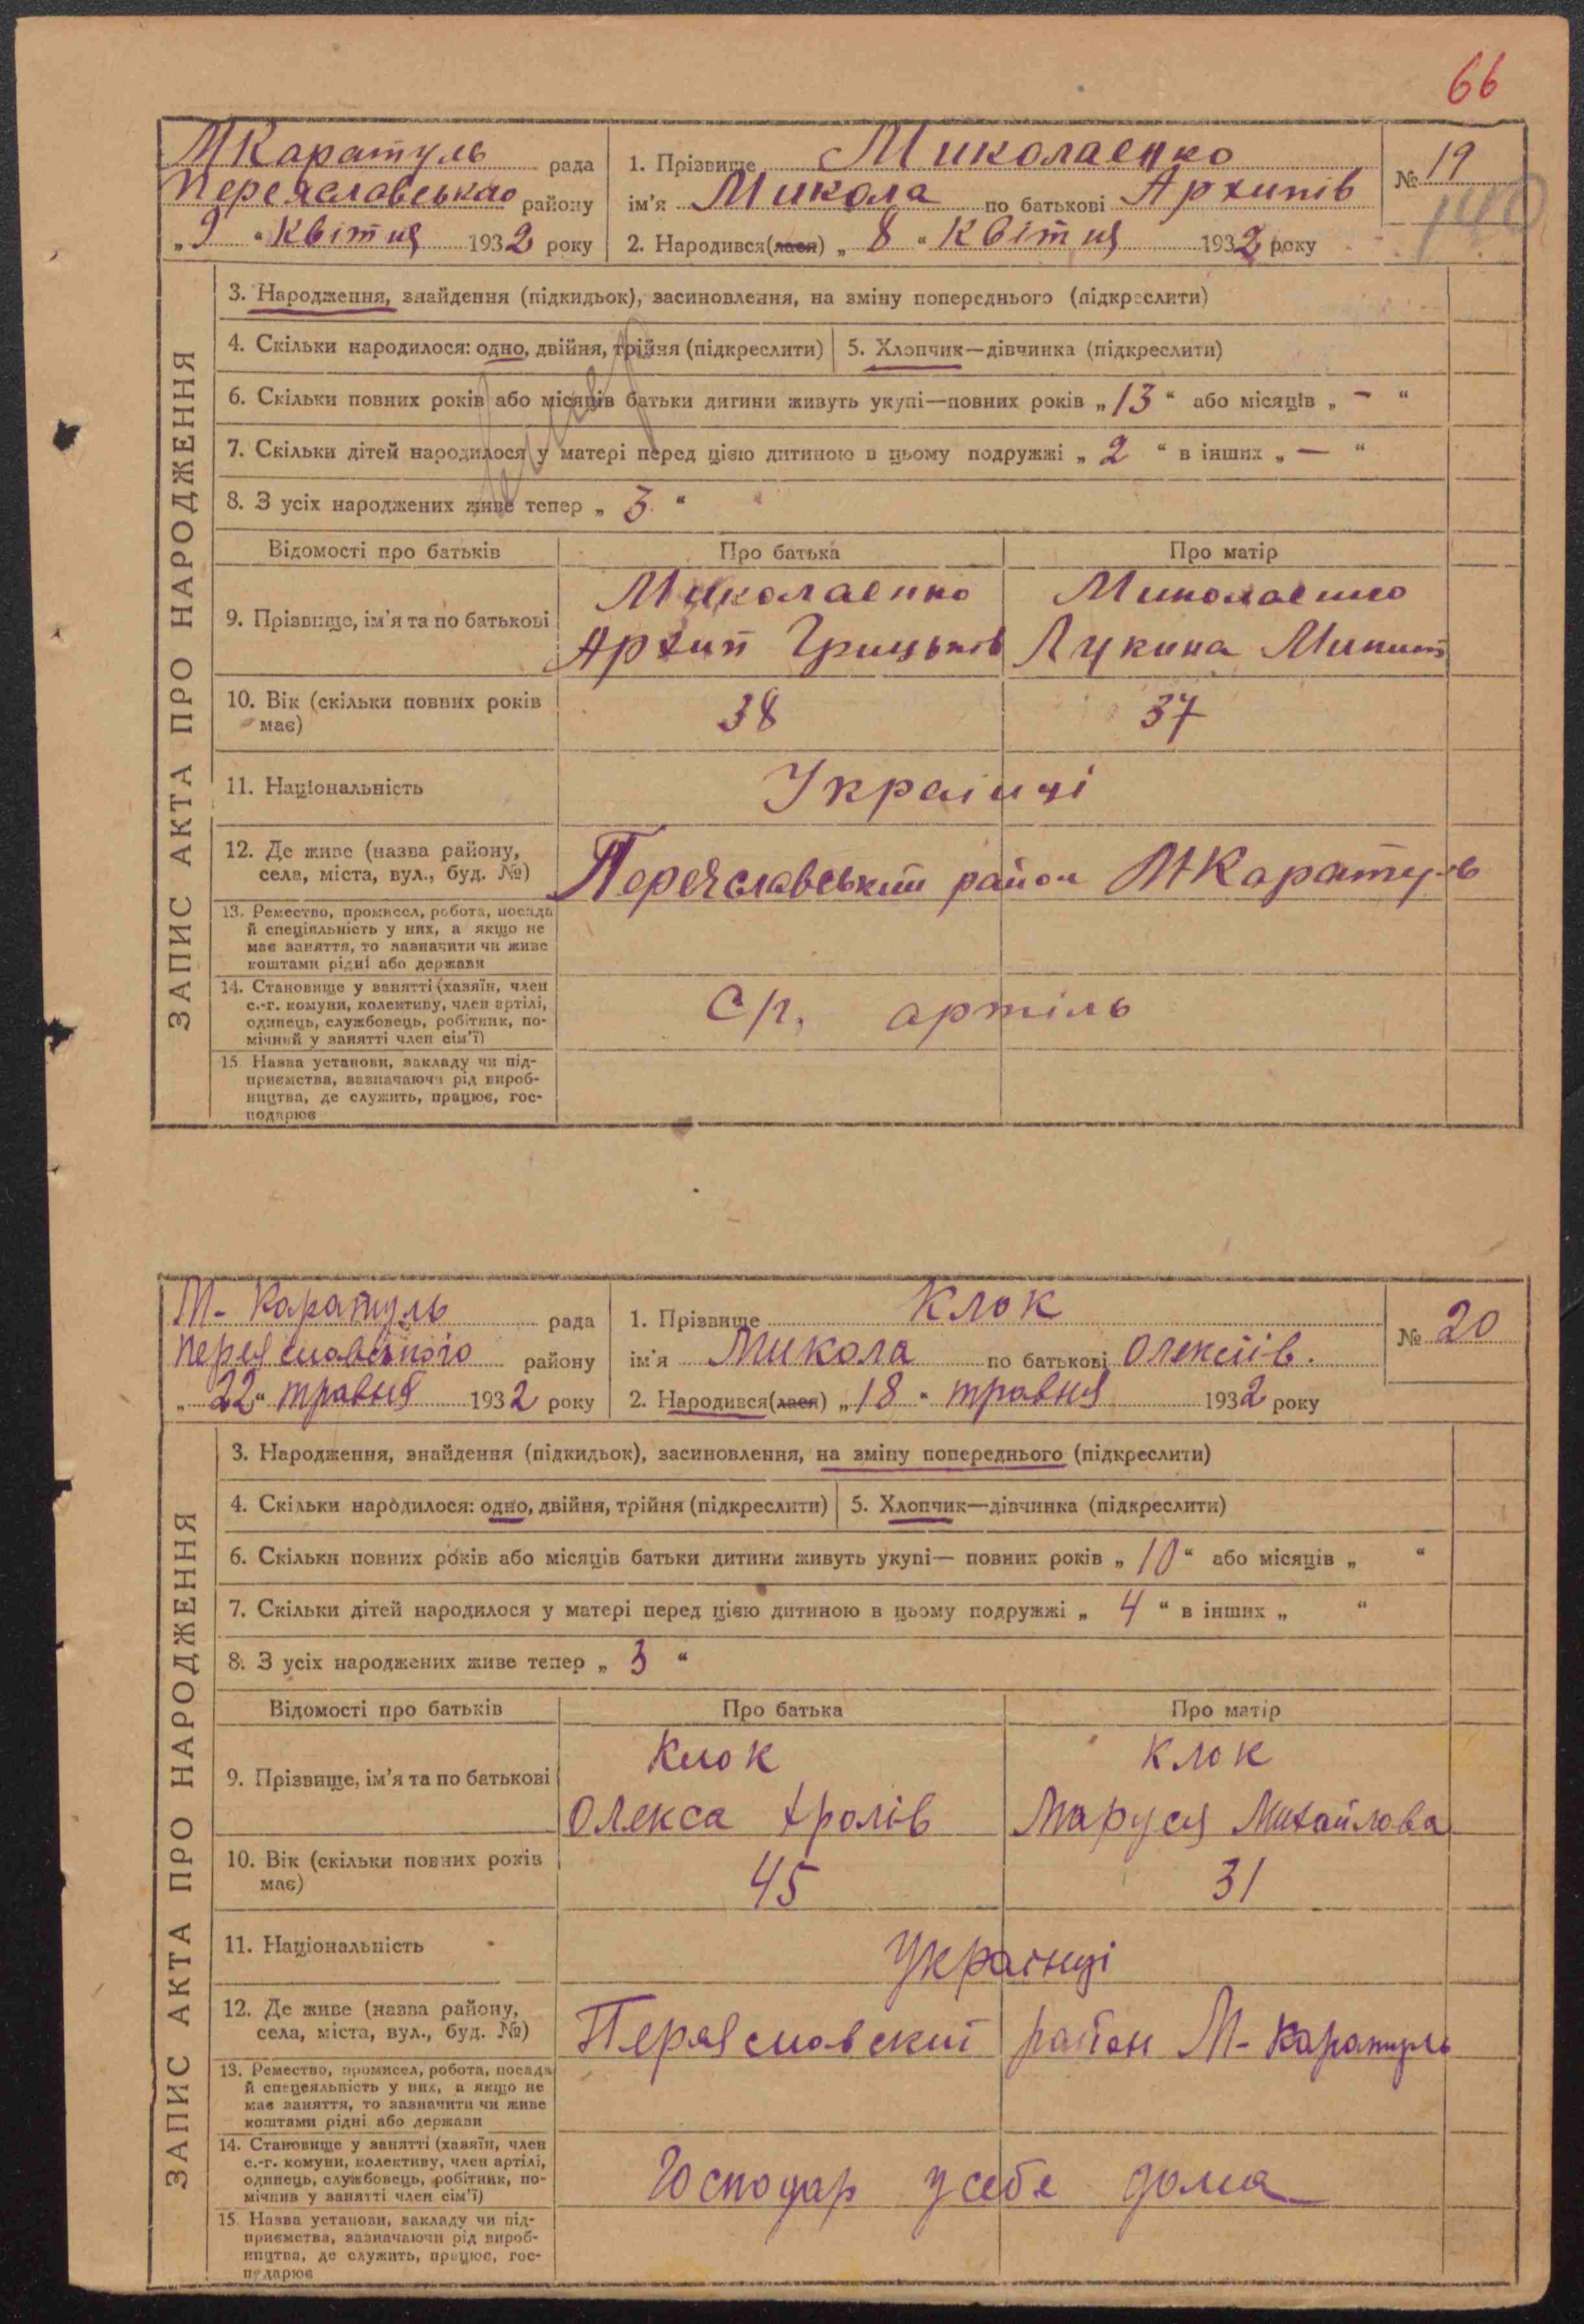 66
МКаратуль рада
Переяславськао району
„ 9 “ Квітня 1932 року
1. Прізвище Миколаенко
ім'я Микола по батькові Архипів
2. Народився(лася) „ 8 “ Квітня 1932 року
№ 19
140
ЗАПИС АКТА ПРО НАРОДЖЕННЯ
3. Народження, знайдення (підкидьок), засиновлення, на зміну попереднього (підкреслити)
4. Скільки народилося: одно, двійня, трійня (підкреслити) 5. Хлопчик—дівчинка (підкреслити)
6. Скільки повних років або місяців батьки дитини живуть укупі—повних років „ 13 “ або місяців „ – “
7. Скільки дітей народилося у матері перед цією дитиною в цьому подружжі „ 2 “ в інших „ — “
8. З усіх народжених живе тепер „ 3 “
Відомості про батьків Про батька Про матір
9. Прізвище, ім'я та по батькові
Миколаенко Миколаенко
Архип Грицьків Лукина
10. Вік (скільки повних років має) 38 37
11. Національність Украінці
12. Де живе (назва району, села, міста, вул., буд. №)
Переяславський район МКаратуль
13. Ремество, промисел, робота, посада
й спеціяльність у них, а якщо не
має заняття, то зазначити чи живе
коштами рідні або держави
14. Становище у занятті (хазяїн, член
с.-г. комуни, колективу, член артілі,
одинець, службовець, робітник, по-
мічний у занятті член сім'ї)
С/г. артіль
15. Назва установи, закладу чи під-
приємства, зазначаючи рід вироб-
ництва, де служить, працює, гос-
подарює
М- Каратуль рада
Переяславського району
„ 22 “ травня 1932 року
1. Прізвище Клок
ім'я Микола по батькові Олексіів.
2. Народився(лася) „ 18 “ травня 1932 року
№ 20
ЗАПИС АКТА ПРО НАРОДЖЕННЯ
3. Народження, знайдення (підкидьок), засиновлення, на зміну попереднього (підкреслити)
4. Скільки народилося: одно, двійня, трійня (підкреслити) 5. Хлопчик—дівчинка (підкреслити)
6. Скільки повних років або місяців батьки дитини живуть укупі— повних років „ 10 “ або місяців „ “
7. Скільки дітей народилося у матері перед цією дитиною в цьому подружжі „ 4 “ в інших „ “
8. З усіх народжених живе тепер „ 3 “
Відомості про батьків Про батька Про матір
9. Прізвище, ім'я та по батькові
Клок Клок
Олекса Маруся Михайлова
10. Вік (скільки повних років має) 45 31
11. Національність Українці
12. Де живе (назва району, села, міста, вул., буд. №)
Переяславский район М- Каратуль
13. Ремество, промисел, робота, посада
й спецеяльність у них, а якщо не
має заняття, то зазначити чи живе
коштами рідні або держави
14. Становище у занятті (хазяїн, член
с.-г. комуни, колективу, член артілі,
одинець, службовець, робітник, по-
мічнив у занятті член сім'ї)
Господар у себе дома
15. Назва установи, закладу чи під-
приємства, зазначаючи рід вироб-
ництва, де служить, працює, гос-
подарює